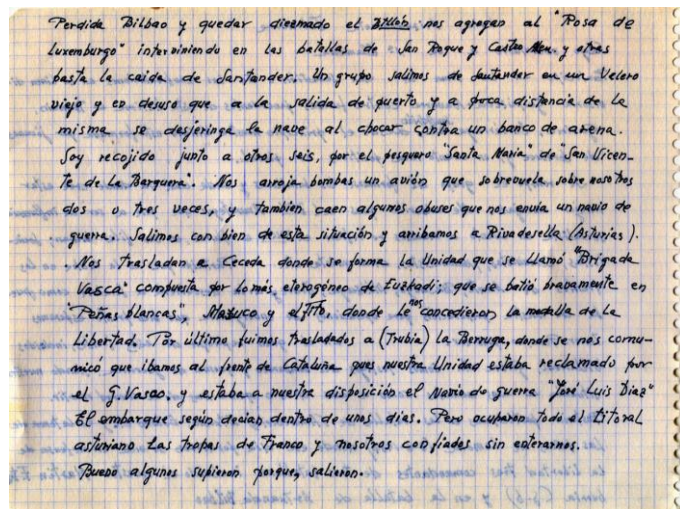 Perdida Bilbao y quedar diezmado el Btllón nos agregan al "Rosa de
Luxemburgo" interviniendo en las batallas de San Roque y Castro Alen. y otras
hasta la caida de Santander. Un grupo salimos de Santander en un Velero
viejo y en desuso que a la salida de puerto y a poca distancia de la
misma se desjeringa la nave al chocar contra un banco de arena.
Soy recojido junto a otros seis, por el pesquero "Santa Maria" de "San Vicen-
te de La Barquera". Nos arroja bombas un avión que sobrevuela sobre nosotros
dos o tres veces, y tambien caen algunos obuses que nos envia un navio de
guerra. Salimos con bien de esta situación y arribamos a Rivadesella (Asturias).
. Nos trasladan a Ceceda donde se forma la Unidad que se llamó "Brigada
Vasca" compuesta por lo más eterogéneo de Euzkadi; que se batió bravamente en
"Peñas blancas", Mazuco y el Fito, donde le nos concedieron la medalla de la
Libertad. Por último fuimos trasladados a (Trubia) la Berruga, donde se nos comu-
nicó que ibamos al frente de Cataluña pues nuestra Unidad estaba reclamado por
el G. Vasco. y estaba a nuestra disposición el Navio de guerra "José Luis Diaz"
El embarque según decian dentro de unos dias. Pero ocuparon todo el Litoral
asturiano Las tropas de Franco y nosotros confiados sin enterarnos.
Bueno algunos supieron porque, salieron.